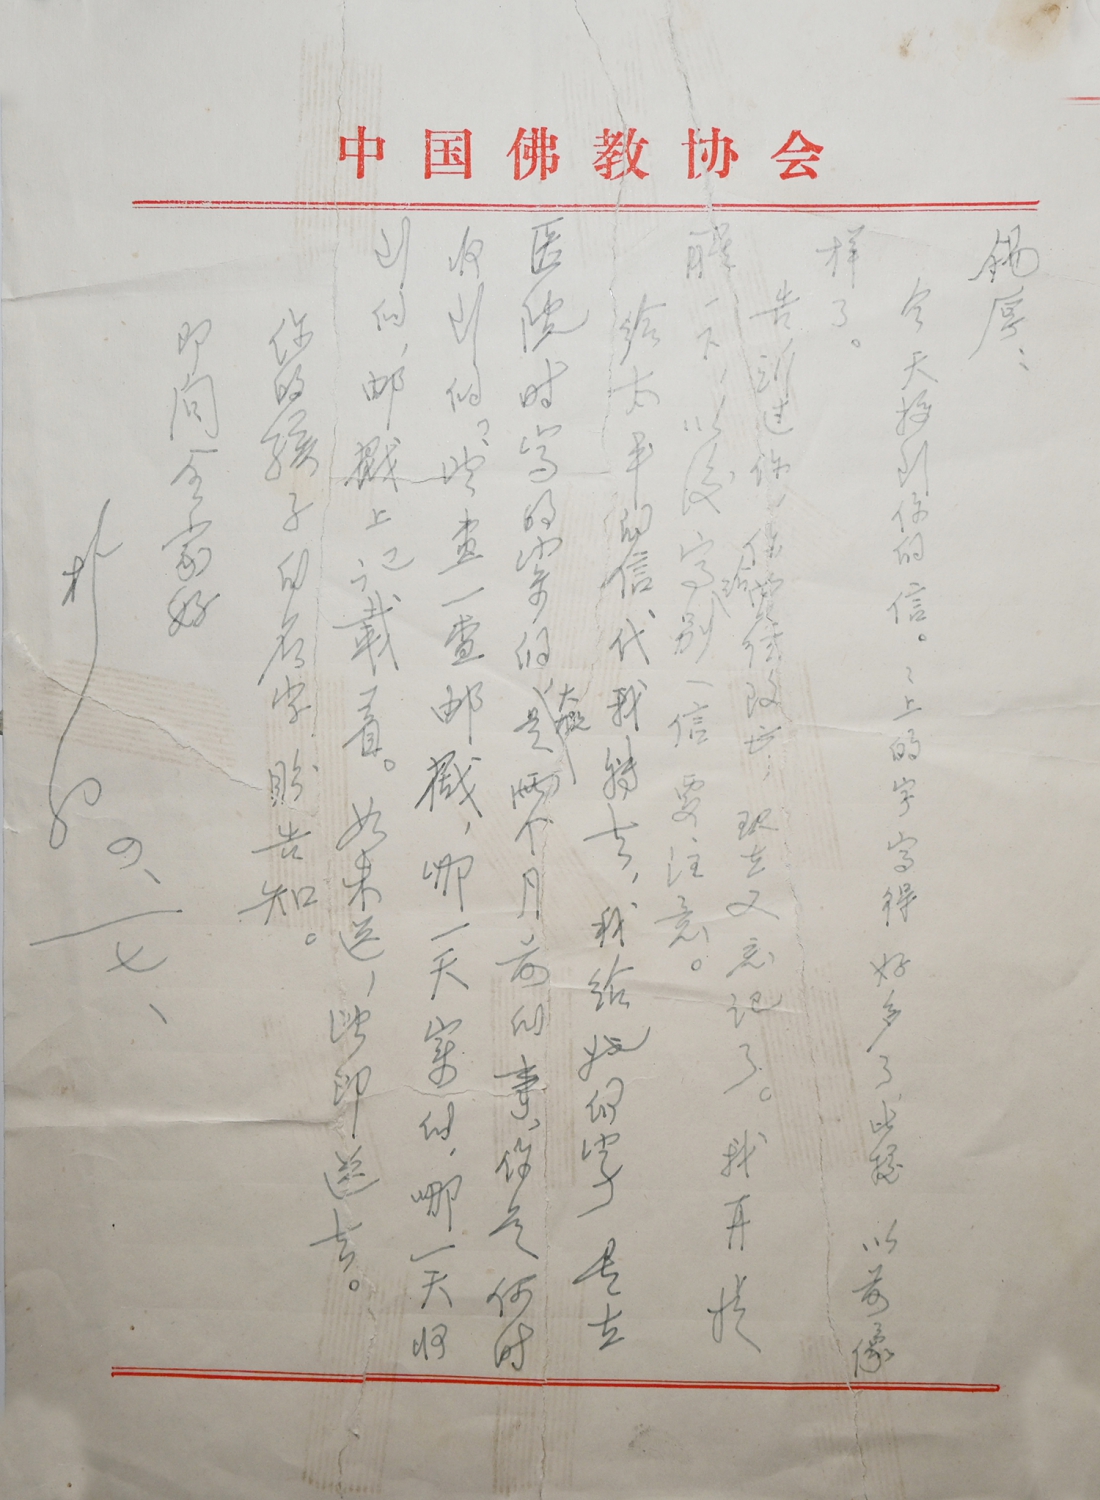 中国佛教协会
锡厚：
今天接到你的信。信上的字写得好多了比起以前像
样了。
告诉过你，信给我，现在又忘记了。我再提
醒一下，以后写别信要注意。
给太平的信代我转去，我给她们写的字是在
医院时写的寄的大概是两个月前的事，你是何时
收到的？望查一查邮戳，哪一天寄的，哪一天收
到的，邮戳上记载着。如未送，望即送去。
你的孩子的名字盼告知。
即问全家好
朴初
四、一七、